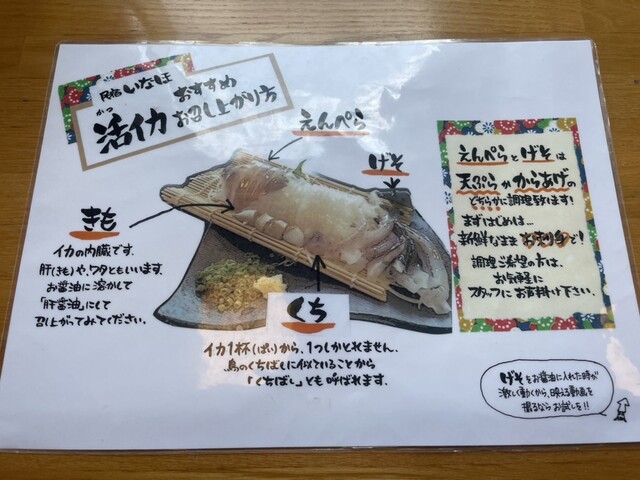 民宿いなほ
おすすめ
かつ
活イカ お召し上がり方
えんぺら
げそ
きも
イカの内臓です。
肝(きも)や、ワタともいいます。
お醤油に溶かして
「肝醤油」にして
召し上がってみてください。
くち
イカ1杯(ぱい)から、1つしかとれません。
鳥のくちばしに似ていることから
「くちばし」とも呼ばれます。
えんぺらとげそは
天ぷらかからあげの
どちらかに調理致します!
まずはじめは…
新鮮なままお刺身で!
調理ご希望の方は、
お気軽に
スタッフにお声掛け下さい。
げそをお醤油に入れた時が
激しく動くから、映える動画を
撮るならお試しを!!